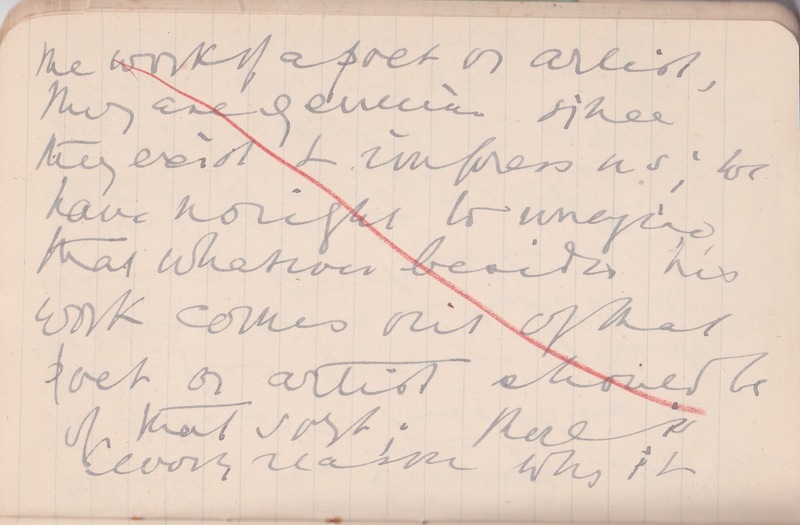 the work of a poet or artist,
They are genuine since
they exist & impress us; we
have no right to imagine
that whatever besides his
work comes out of that
poet or artist should be
of that sort. There is
every reason why it